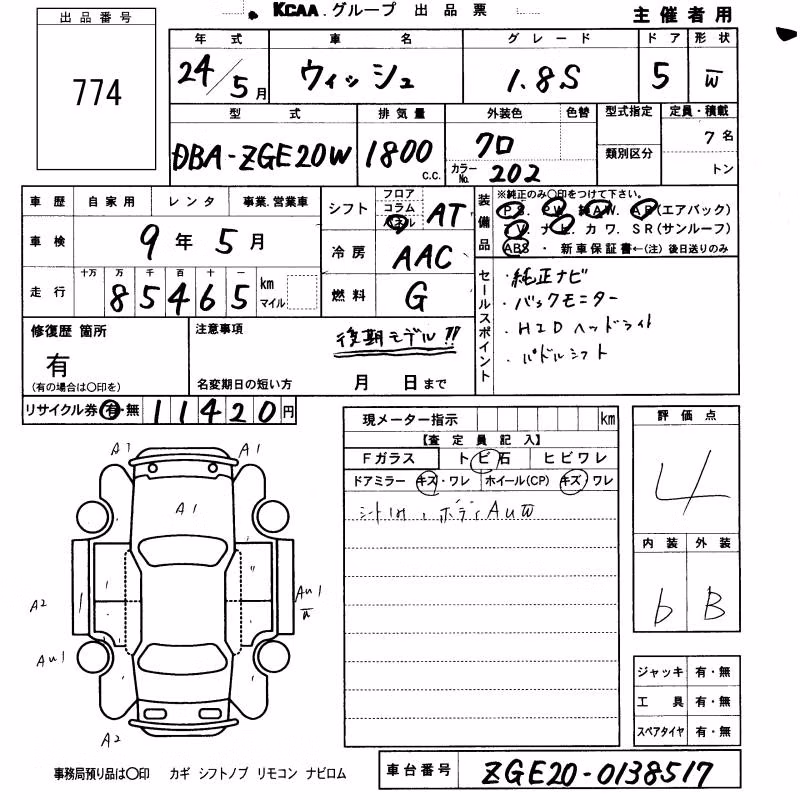 KCAA.グループ 出品票
主催者用
出品番号
774
年式 車名 グレード ドア 形状
24/5月 ウィッシュ 1.8S 5 W
型式 排気量 外装色 色替 型式指定 定員・積載
DBA-ZGE20W 1800c.c. クロ 7名
カラーNo. 202 類別区分 トン
車歴 自家用 レンタ 事業.営業車
車検 9年5月
走行 十万 万 千 百 十 一
85465 km マイル
シフト フロア コラム パネル AT
冷房 AAC
燃料 G
装備品
※純正のみ〇印をつけて下さい。
P.S. P.W. 純A.W. AB(エアバック)
T.V. ナビ. カワ. SR(サンルーフ)
ABS ・ 新車保証書←(注)後日送りのみ
セールスポイント
・純正ナビ
・バックモニター
・HIDヘッドライト
・パドルシフト
修復歴 箇所
有
(有の場合は〇印を)
注意事項
後期モデル!!
名変期日の短い方 月 日まで
リサイクル券 有・無 11420円
現メーター指示 km
【査定員記入】
Fガラス トビ石 ヒビワレ
ドアミラー キズ・ワレ ホイール(CP) キズ・ワレ
シート1H、ボディAUW
評価点
4
内装 外装
b B
A1 A1
A1
A2
AU1
W
AU1
A2
ジャッキ 有・無
工具 有・無
スペアタイヤ 有・無
事務局預り品は〇印 カギ シフトノブ リモコン ナビロム
車台番号 ZGE20-0138517